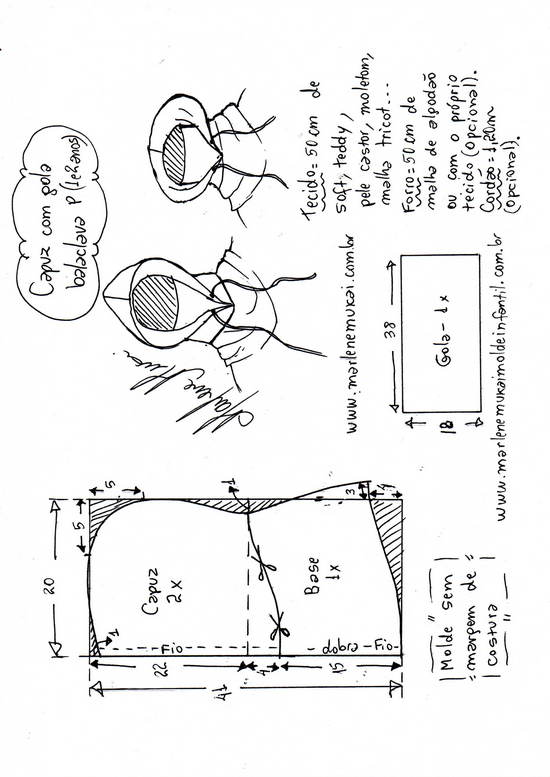 Capuz com gola
balaclava P (1e2anos)
Marlene Mukai
Tecido=50cm de
soft, teddy,
pele castor, moletom,
malha tricot...
Forro=50cm de
malha de algodão
ou com o próprio
tecido (opcional).
Cordão=1,20cm
(opcional).
www.marlenemukai.com.br
38
Gola-1x
18
www.marlenemukaimoldeinfantil.com.br
20
5
5
1
3
4
Capuz
2x
Base
1x
1
Fio
dobra-Fio
22
4
15
41
Molde sem
margem de
costura